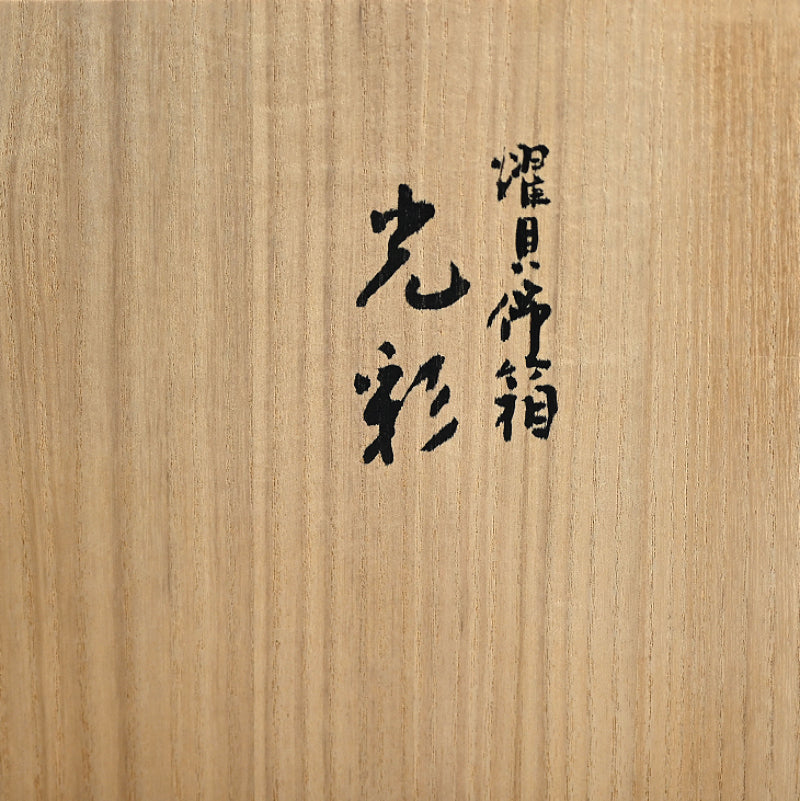 燿貝飾箱
光彩